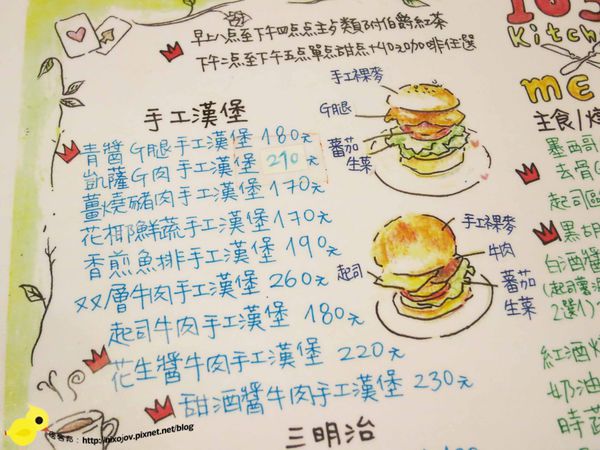 早上八点至下午四点点主食類附伯爵紅茶
下午二点至下午五點單點甜点+40元咖啡任選
手工漢堡
青醬G腿手工漢堡 180元
凱薩G肉手工漢堡 210元
薑燒豬肉手工漢堡 170元
花椰鮮蔬手工漢堡 170元
香煎魚排手工漢堡 190元
双層牛肉手工漢堡 260元
起司牛肉手工漢堡 180元
花生醬牛肉手工漢堡 220元
甜酒醬牛肉手工漢堡 230元
三明治
手工裸麥
G腿
蕃茄
生菜
手工裸麥
牛肉
起司
蕃茄
生菜
Kitch
ME
主食/
墨西哥
去骨G
起司
黑胡
白酒醬
2選1)
紅酒
奶油
時蔬
http://nixojov.pixnet.net/blog